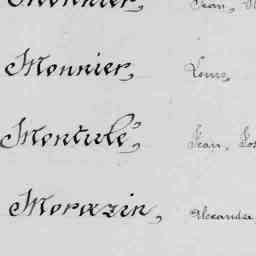 Monnier, Jean,
Monnier, Louis,
Montulé, Jean, Jos
Morazin, Alexandre